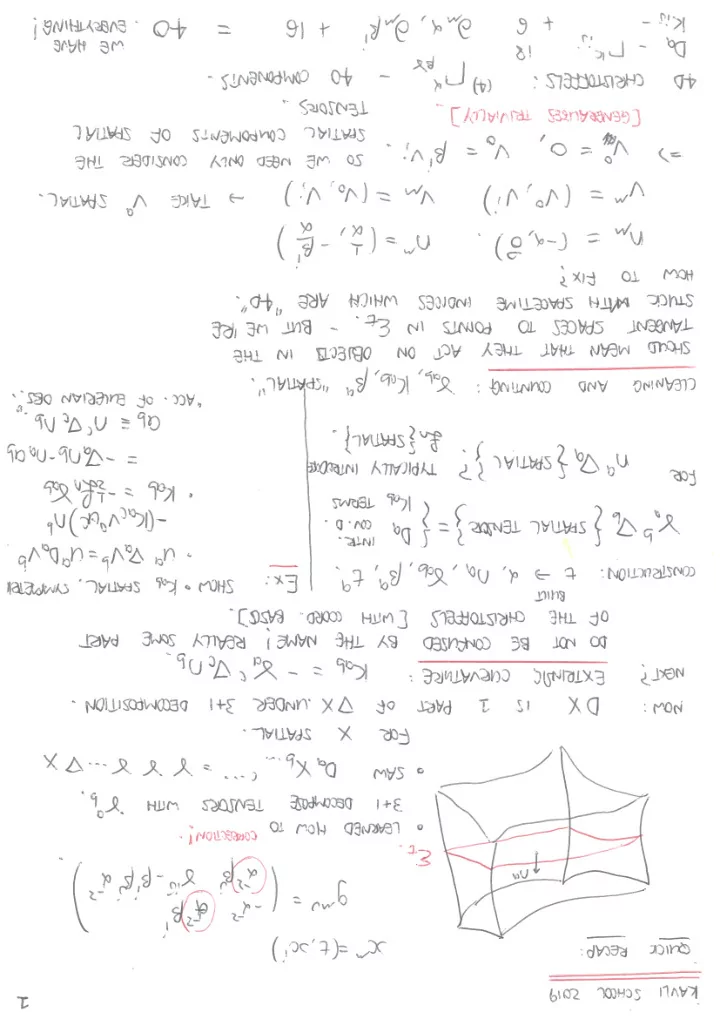 1
KAVLI SCHOOL 2019
QUICK RECAP:
x^μ = (t, x^i)
g^{μν} = ( -α^{-2} α^{-2}β^i
α^{-2}β^j γ^{ij} - β^iβ^jα^{-2} ).
n^a
Σ_t
CORRECTION!
• LEARNED HOW TO
3+1 DECOMPOSE TENSORS WITH γ^a_b.
• SAW D_a X_{b...}^{c...} = γ γ γ ... ∇X
FOR X SPATIAL.
NOW: DX IS 1 PART OF ∇X UNDER 3+1 DECOMPOSITION.
NEXT? EXTRINSIC CURVATURE: K_{ab} = - γ_a^c ∇_c n_b.
DO NOT BE CONFUSED BY THE NAME! REALLY SOME PART
OF THE CHRISTOFFELS [WITH COORD. BASIS].
BUILT
CONSTRUCTION: t → α, n_a, γ_{ab}, β^a, t^a.
γ_a^b ∇_b { SPATIAL TENSOR } = { D_a INTR. COV. D.
K_{ab} TERMS
FOR n^a ∇_a { SPATIAL }? TYPICALLY INTRODUCE
L_n {SPATIAL}.
Ex: SHOW • K_{ab} SPATIAL, SYMMETRI
• u^a ∇_a v^b = u^a D_a v^b
-(K_{ac} v^a u^c) n^b
• K_{ab} = -½ L_n γ_{ab}
= -∇_a n_b - n_a a_b
a_b = n^c ∇_c n_b
"ACC. OF EULERIAN OBS."
CLEANING AND COUNTING: γ_{ab}, K_{ab}, β^a "SPATIAL".
SHOULD MEAN THAT THEY ACT ON OBJECTS IN THE
TANGENT SPACES TO POINTS IN Σ_t. - BUT WE'RE
STUCK WITH SPACETIME INDICES WHICH ARE "4D".
HOW TO FIX?
n_μ = (-α, 0). n^μ = (1/α, -β^i/α)
V^μ = (V^0, V^i) V_μ = (V_0, V_i) → TAKE V^a SPATIAL.
=> V^0 = 0, V_0 = β^i V_i. SO WE NEED ONLY CONSIDER THE
SPATIAL COMPONENTS OF SPATIAL
TENSORS.
[GENERALISES TRIVIALLY]
4D CHRISTOFFELS: (4)Γ^α_{βδ} - 40 COMPONENTS.
D_a - Γ^k_{ij} 18
K_{ij} - + 6 ∂_μα, ∂_μβ^i + 16 = 40. WE HAVE
EVERYTHING!